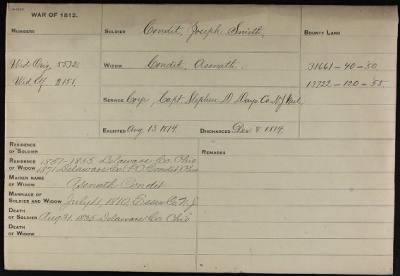 WAR OF 1812.
NUMBERS
SOLDIER Condit, Joseph Smith,
BOUNTY LAND
WIDOW Condit, Asenath
31661-40-50
Wid. Ctf. 2151.
13722-120-55.
SERVICE Corp., Capt. Stephen D. Day's Co. N.J. Mil.
ENLISTED Aug 13 1814. DISCHARGED Dec. 8 1814.
RESIDENCE OF SOLDIER
REMARKS
RESIDENCE OF WIDOW 1851-1855 Delaware Co. Ohio
1871 Delaware Co. (P.O. Condit) Ohio
MAIDEN NAME OF WIDOW Asenath Condit
MARRIAGE OF SOLDIER AND WIDOW July 11, 1810, Essex Co. N.J.
DEATH OF SOLDIER Aug 31, 1835 Delaware Co. Ohio
DEATH OF WIDOW